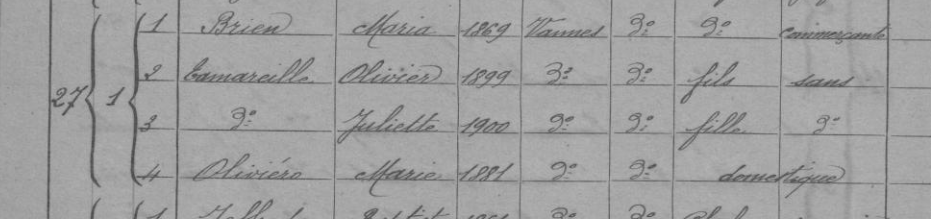 27 1 1 Brien Maria 1869 Vannes do do commerçante
2 Camareille Olivier 1899 do do fils sans
3 do Juliette 1900 do do fille do
4 Oliviéro Marie 1881 do do domestique
1 do do